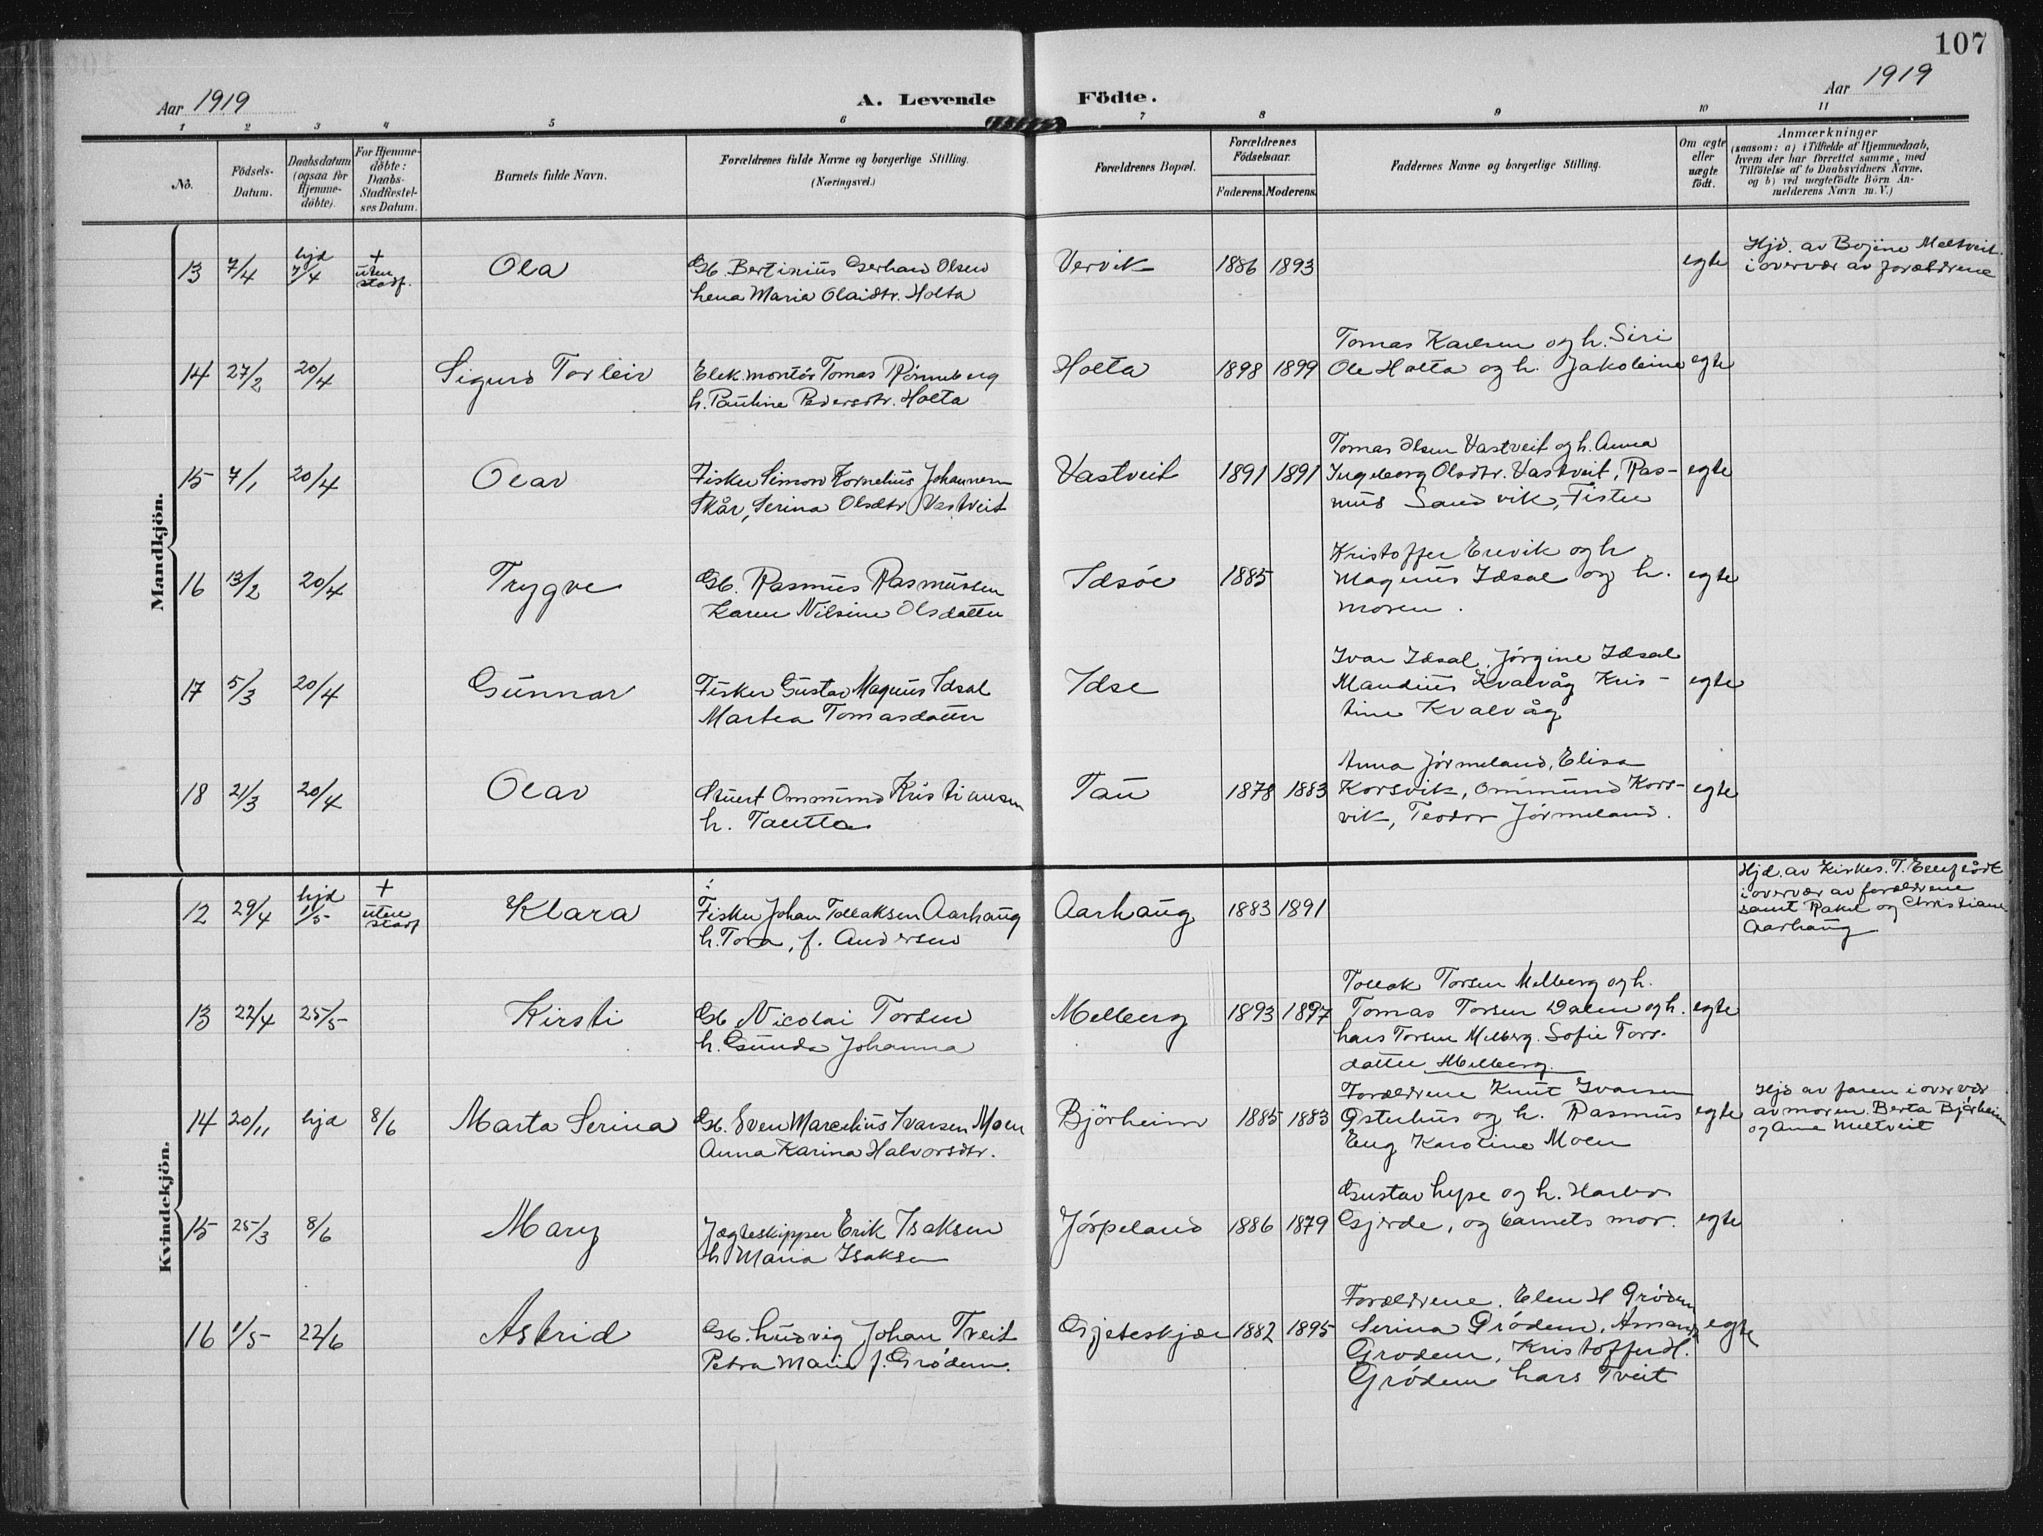 107
Aar 1919
A. Levende Födte.
Aar 1919
1 2 3 4 5 6 7 8 9 10 11
No.
Födsels-
Datum.
Daabsdatum
(ogsaa for
Hjemme-
döbte).
For Hjemme-
döbte:
Daabs-
Stadfæstel-
ses Datum.
Barnets fulde Navn.
Forældrenes fulde Navne og borgerlige Stilling.
(Næringsvei.)
Forældrenes Bopæl.
Forældrenes
Födselsaar.
Faderens. Moderens.
Faddernes Navne og borgerlige Stilling.
Om ægte
eller
uægte
født.
Anmærkninger
(saasom: a) i Tilfælde af Hjemmedaab,
hvem der har forrettet samme, med
Tilföielse af to Daabsvidners Navne,
og b) ved uægtefödte Börn An-
melderens Navn m. V.)
Mandkjön.
13 7/4 hjd 7/4 + uten stadf. Ola
Gb. Bertinius Gerhard Olsen
Lena Maria Olaidtr. Holta
Vervik 1886 1893 egte
Hjd. av Bojine Meltveit
i overvær av forældrene
14 27/2 20/4 Sigurd Torleiv
Elek. montör Tomas Rönneberg
h. Pauline Pedersdtr. Holta
Holta 1898 1899
Tomas Karlsen og h. Siri
Ole Holta og h. Jakobine egte
15 7/1 20/4 Olav
Fisker Simon Kornelius Johannesen
Skår, Serina Olsdtr. Vastveit
Vastveit 1891 1891
Tomas Olsen Vastveit og h. Anna
Ingeborg Olsdtr. Vastveit, Ras-
mus Sandvik, Fister
egte
16 13/2 20/4 Trygve
Gb. Rasmus Rasmussen
Karen Nilsine Olsdatter
Idsöe 1885
Kristoffer Erevik og h
Magnus Idsal og h.
moren.
egte
17 5/3 20/4 Gunnar
Fisker Gustav Magnus Idsal
Martea Tomasdatter
Idse
Ivar Idsal, Jörgine Idsal
Mandius Kvalvåg Kris-
tine Kvalvåg
egte
18 21/3 20/4 Olav
Stuert Ommund Kristiansen
h. Taletta
Tau 1878 1883
Anna Jörmeland, Elisa
Korsvik, Ommund Kors-
vik, Teodor Jörmeland.
egte
Kvindekjön.
12 29/4 hjd 11/5 + uten stadf Klara
Fisker Johan Tollaksen Aarhaug
h. Tora, f. Andersen
Aarhaug 1883 1891
Hjd. av Kirkes. T. Ellefsödt
i overvær av forældrene
samt Rakel og Christiane
Aarhaug
13 22/4 25/5 Kirsti
Gb Nicolai Torsen
h. Gunda Johanna
Melberg 1893 1897
Tollak Torsen Melberg og h.
Tomas Torsen Dalen og h.
Lars Torsen Melberg. Sofie Tors-
datter Melberg
egte
14 20/11 hjd 8/6 Marta Serina
Gb. Sven Marcelius Ivarsen Moen
Anna Karina Halvorsdtr.
Björheim 1885 1883
Forældrene Knut Ivarsen
Österhus og h. Rasmus
Eng Karoline Moen
egte
Hjd av faren i overvær
av moren. Berta Björheim
og Ane Meltveit
15 25/3 8/6 Mary
Jægteskipper Erik Isaksen
h Maria Isaksen
Jörpeland 1886 1879
Gustav Lyse og h. Harles
Gjerde, og barnets mor.
egte
16 1/5 22/6 Astrid
Gb. Ludvig Johan Tveit
Petra Marie f. Grödem.
Gjeteskjær 1882 1895
Forældrene. Elen H Grödem
Serina Grödem, Amanda
Grodem, Kristoffer H.
Grödem Lars Tveit
egte